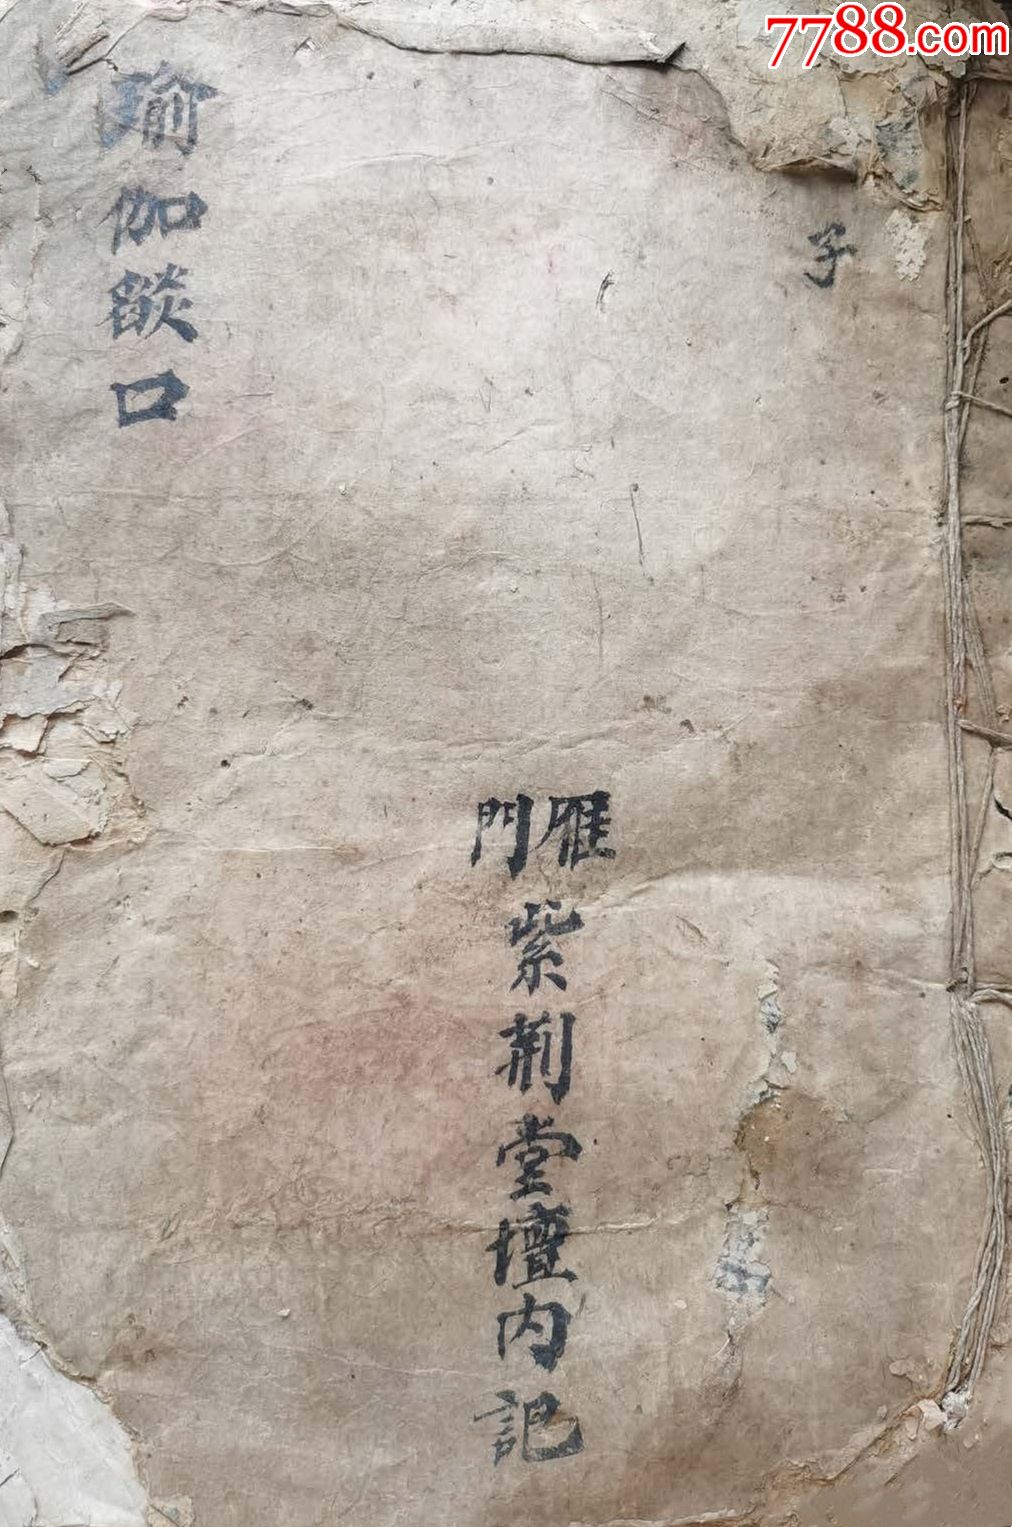 7788.com
子
雁門
紫荆堂壇内記
瑜伽燄口